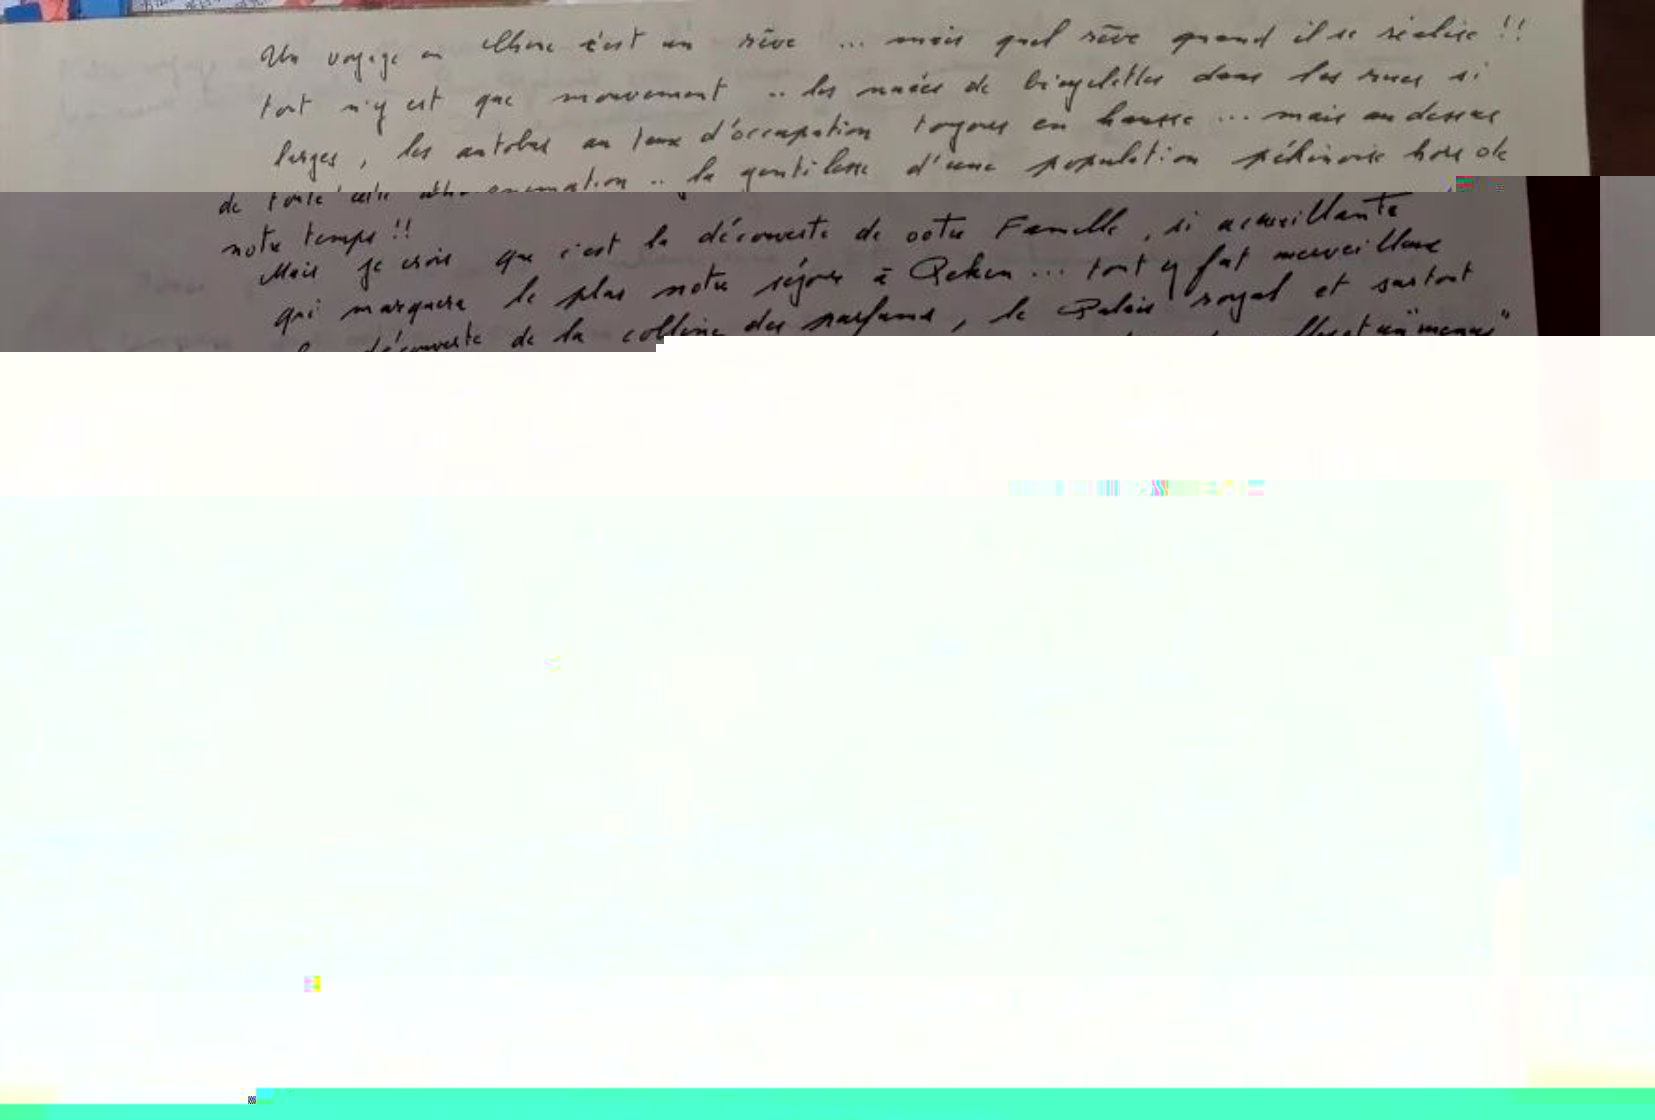 Un voyage en Chine c'est un rêve ... mais quel rêve quand il se réalise !!
tout n'y est que mouvement .. les nuées de bicyclettes dans les rues si
larges, les autobus au taux d'occupation toujours en hausse ... mais au dessus
de toute cette animation .. la gentillesse d'une population pékinoise hors de
notre temps !!
Mais je crois que c'est la découverte de votre Famille, si accueillante
qui marquera le plus notre séjour à Pekin ... tout y fut merveilleux
découverte de la colline des parfums, le Palais royal et surtout
"menus"